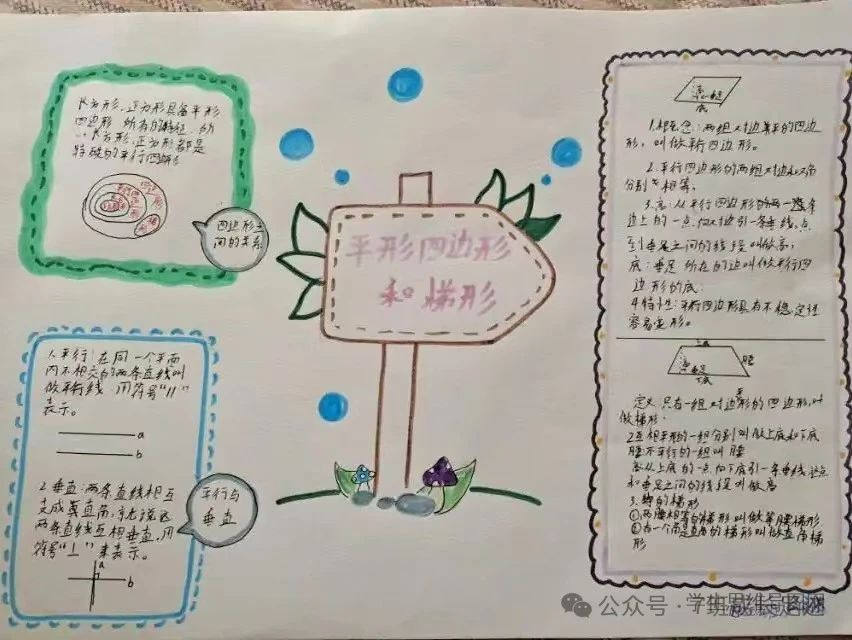 平形四边形
和梯形
长方形、正方形具备平形
四边形 所有的特征，所
以长方形、正方形都是
特殊的平行四边形
四边形之
间的关系
1.平行：在同一个平面
内不相交的两条直线叫
做平行线，用符号“//”
表示。
a
b
2.垂直：两条直线相互
交成直角，就说这
两条直线互相垂直，用
符号“⊥”来表示。
a
b
平行与
垂直
高
垂足
底
1.概念：两组对边平的四边
形，叫做平行四边形。
2.平行四边形的两组对边和对角
分别相等。
3.高：从平行四边形的一条
边上的一点，向对边引一条垂线，点
到垂足之间的线段叫做高；
底：垂足所在的边叫做平行四
边形的底；
4.特性：平行四边形具有不稳定性
容易变形。
上底
腰
高
垂足
下底
定义 只有一组对边平行的四边形，叫
做梯形。
2.互相平形的一组分别叫做上底和下底
腰不平行的一组叫腰
高从上底的一点，向下底引一条垂线这点
和垂足之间的线段叫做高
3.的梯形
①两腰相等的梯形叫做等腰梯形
②有一个角是直角的梯形叫做直角梯
形
公众号·学